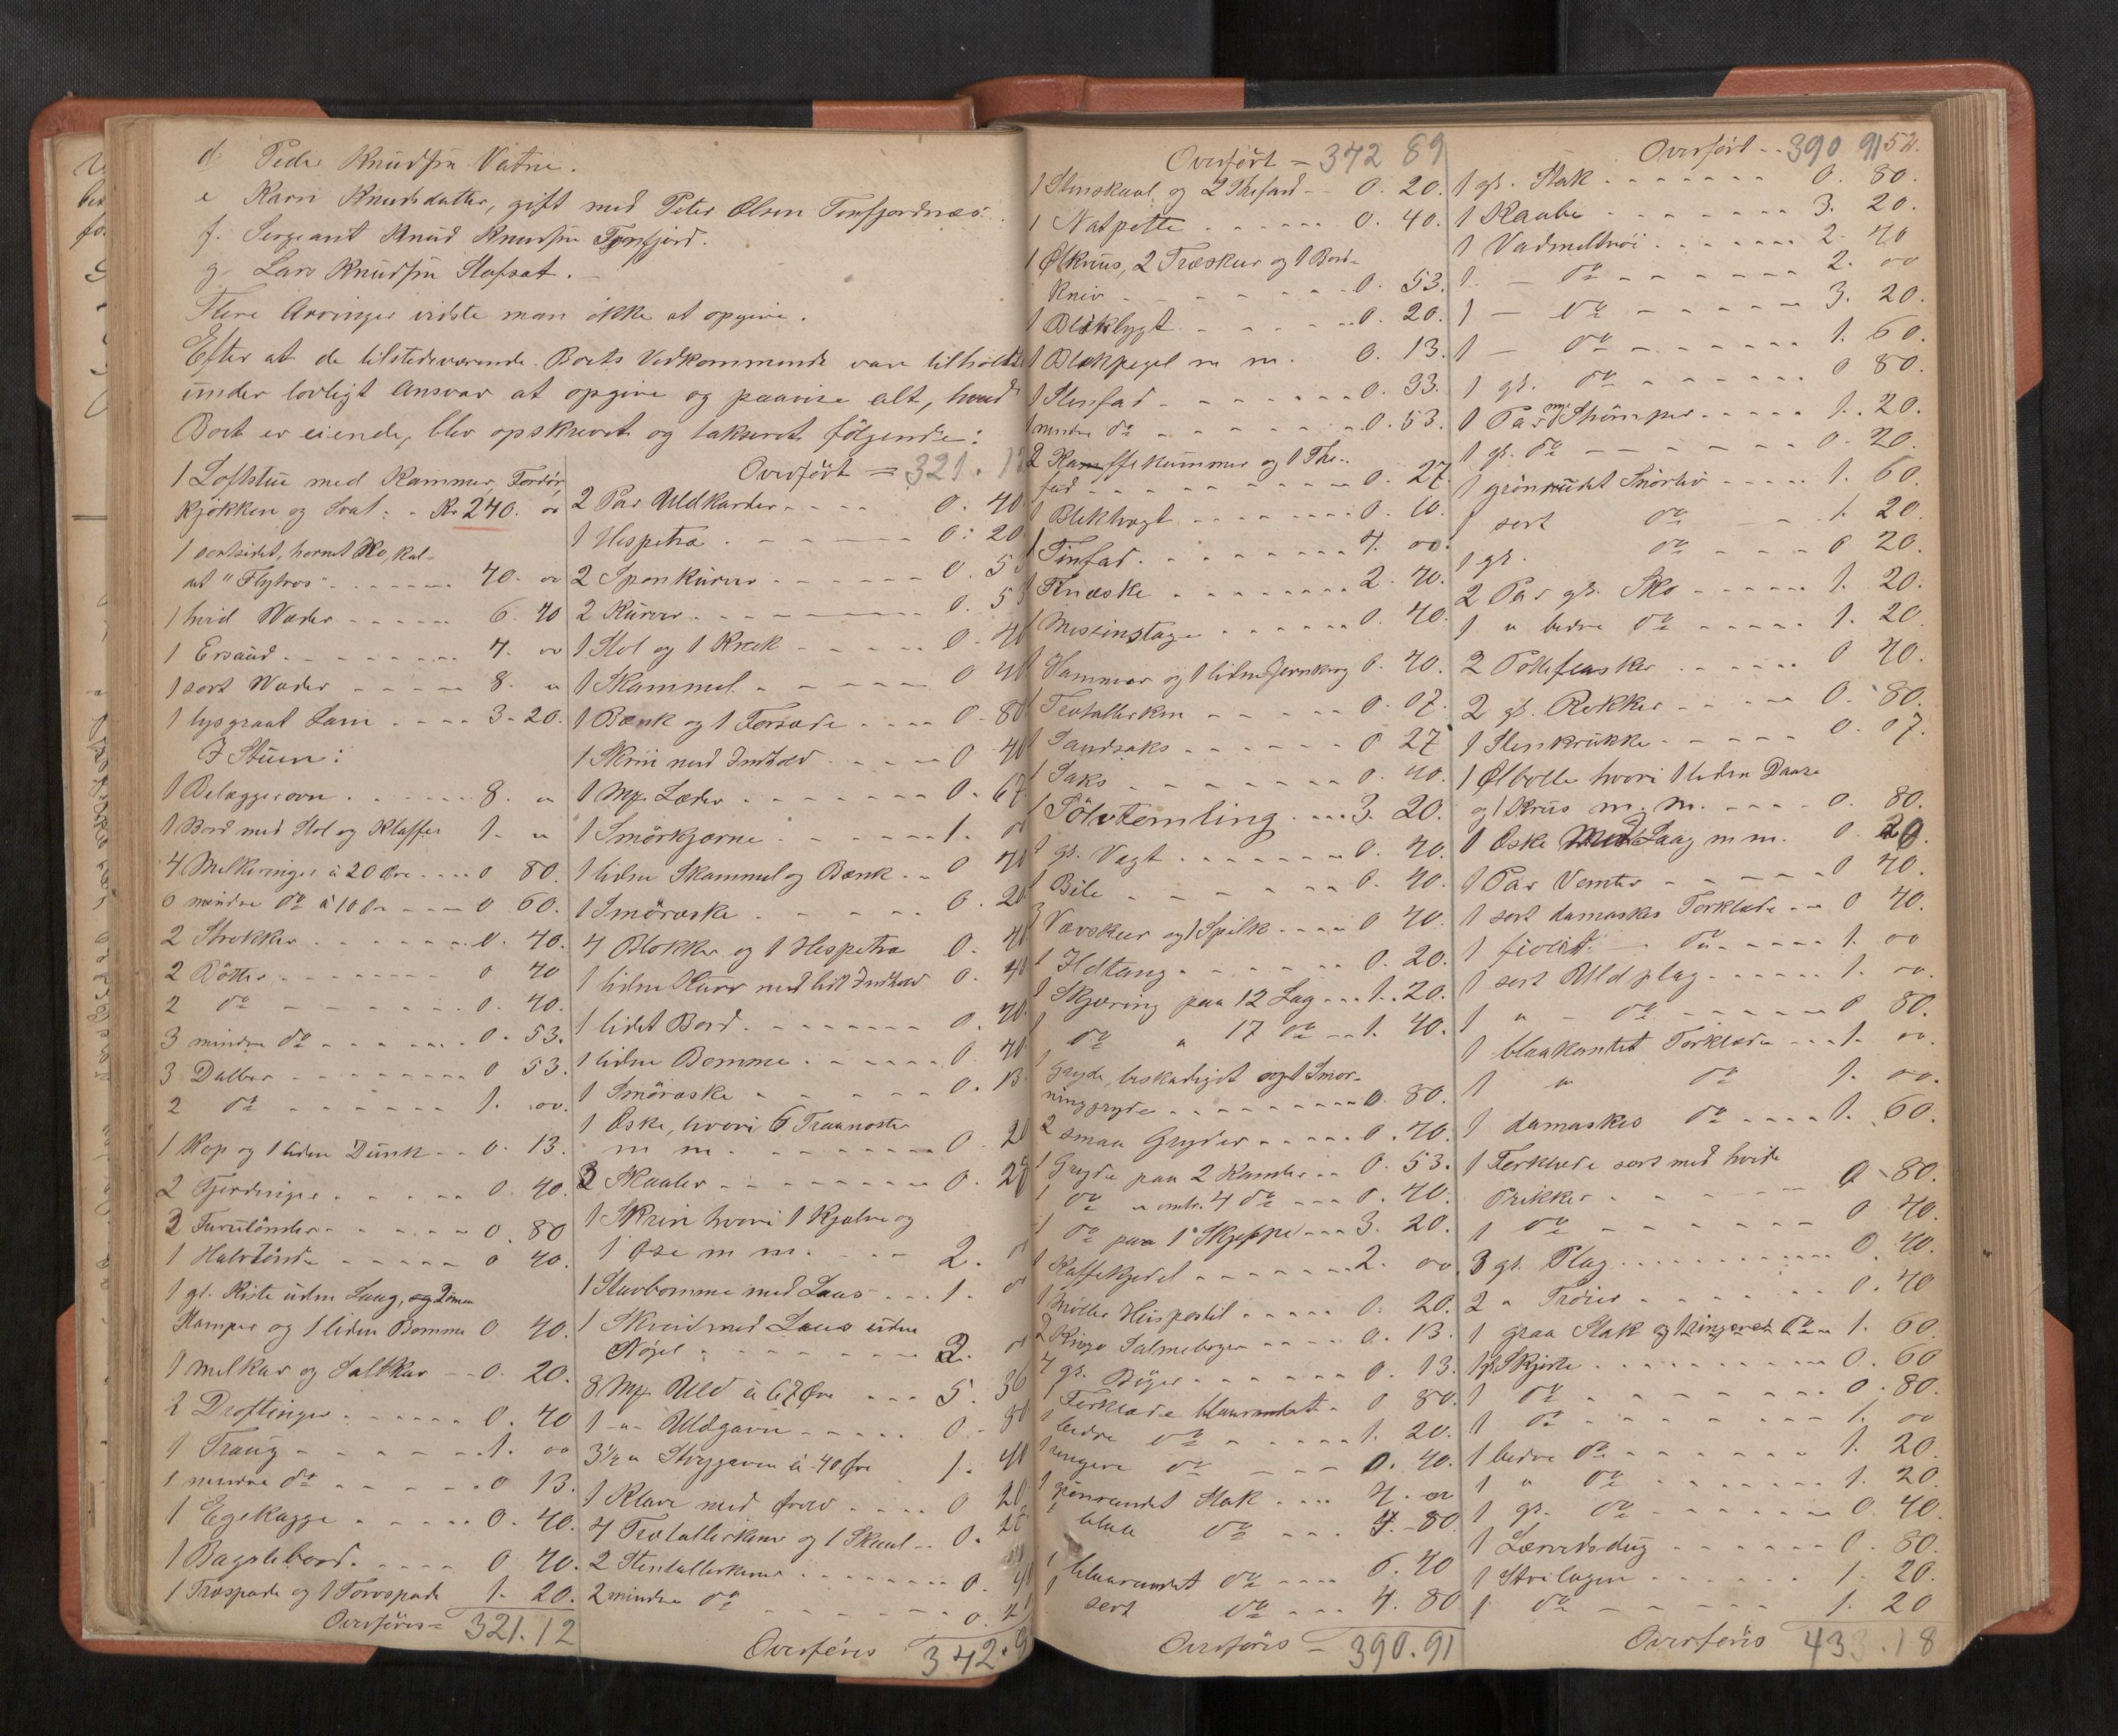 d. Peder Knudsen Vatne.
e Karn Knudsdatter, gift med Peter Olsen Tenfjordnæs.
f. Sergeant Knud Knudsen Tenfjord.
g Lars Knudsen Slafsat.
Flere Arvinger vidste man ikke at opgive.
Efter at de tilstedeværende Boets Vedkommende vare tilholdte
under lovligt Ansvar at opgive og paavise alt, hvad
Boet er eiende, blev opskrevet og takseret følgende:
1 Loftstue med Kammer, Fordør,
Kjökken og Sval: Kr 240. 00
1 sortsidet, hornet Ko, kal-
et "Flytros" 40. 00
1 hvid Væder 6. 40
1 Ersaud 4. 00
1 sort Væder 8. "
1 lysgraat Lam 3. 20.
I Stuen:
1 Belæggerovn 8. "
1 Bord med Stol og Klaffer 1. "
4 Melkeringer à 20 Øre 0 80.
6 mindre do à 10 Øre 0 60.
2 Strokker 0. 40.
2 Bötter 0 40
2 do 0. 40.
3 mindre do 0. 53.
3 Daller 0 53.
2 do 1. 00.
1 Kop og 1 liden Dunk 0. 13.
2 Fjerdinger 0 40.
3 Furutönder 0. 80
1 Halvtönde 0 40.
1 gl. Kiste uden Laag, og 2 smaa
Stamper og 1 liden Bomme 0 40.
1 Melkar og Saltkar 0. 20.
2 Dröftinger 0. 40
1 Traug 1. 00
1 mindre do 0 13.
1 Egekagge 0. 40.
1 Bagstebord 0 40.
1 Træspade og 1 Torvspade 1. 20.
Overføres = 321. 12
Overført = 321. 12
2 Par Uldkarder 0. 40
1 Hespetræ 0. 20
2 Sponkurver 0. 53
2 Kurver 0. 53
1 Stol og 1 Krak 0. 40
1 Skammel 0 40
1 Bænk og 1 Forsæde 0. 80
1 Skrin med Indhold 0 40
1 Mk. Læder 0. 67
1 Smörkjærne 1. 00
1 liden Skammel og Bænk 0 40
1 Smöræske 0. 20
4 Blokker og 1 Hespetræ 0. 40
1 liden Kurv med lidt Indhold 0. 40
1 lidet Bord 0. 40.
1 liden Bomme 0. 40
1 Smöræske 0. 13.
1 Æske, hvori 6 Traanoster
m m. 0. 20
3 Skaaler 0. 28
1 Skrin hvori 1 Kjælve og
1 Øse m m. 2. 00
1 Stavbomme med Laas 1. 00
1 Skreid med Laas uden
Nøgel 2. 00
8 Mk. Uld à 67 Øre 5. 36
1 " Uldgarn 0. 80
3 1/2 " Strygarn à 40 Øre 1. 40
1 Klave med Øvrev 0 20
4 Trætallerkener og 1 Skaal 0. 20
2 Stentallerkener 0. 40
2 mindre do 0. 2
Overføres 342. 9
Overført = 342 89
1 Stenskaal og 2 Thefad 0. 20.
1 Natpotte 0. 40.
1 Ølkruus, 2 Træskeer og 1 Bord-
Kniv 0. 53.
1 Bliklygt 0. 20.
1 Blikpegel m m. 0. 13.
1 Stenfad 0. 93.
1 mindre do 0. 53.
2 Kaffekummer og 1 The-
fad 0. 27.
1 Bliktragt 0. 10.
1 Tinfad 4. 00.
1 Knæske 2. 40.
1 Messinstage 0. 40.
1 Hammar og 1 liden Jernkrog 0. 40.
1 Trætallerken 0. 07.
1 Saudsaks 0 27
1 Saks 0. 40.
1 Sölvtemling 3. 20.
1 gl. Vægt 0. 40.
1 Bile 0. 40.
3 Vævskeer og 1 Spilk 0 40.
1 Ildtang 0. 20.
1 Skjæring paa 12 Lag 1. 20.
1 do " 17 do 1. 40.
1 Gryde, beskadiget og 1 Smør-
ninggryde 0 80.
2 smaa Gryder 0. 40.
1 Gryde paa 2 Kander 0. 53.
1 do " omtr. 4 do 0. 40.
1 do paa 1 Skjeppe 3. 20.
1 Kaffekjedel 2. 00.
1 Møllers Huspostil 0. 20.
2 Kingo Salmeboger 0. 13.
4 gl. Böger 0. 13.
1 Forklæde blaarandet 0 80.
1 bedre do 1. 20.
1 ringere do 0. 40.
1 grönrandet Stak 4. 00
1 blaa do 4. 80
1 blaarandet do 6. 40
1 sort do 4. 80
Overføres = 390. 91
Overført 390 91 52.
1 gl. Stak 0. 80.
1 Kaabe 3. 20.
1 Vadmelströi 2. 40
1 — do 2. 00
1 — do 3. 20.
1 — do 1. 60.
1 gl. do 0 80.
1 Par ny Strömper 1. 20.
1 gl. do 0. 20.
1 grönrudet Snörliv 1. 60.
1 sort do 1. 20
1 gl. do 0 20.
2 Par gl. Sko 1. 20.
1 " bedre do 1. 20.
2 Potteflasker 0 40.
2 gl. Rokker 0. 80.
1 Stenkrukke 0. 07.
1 Ølbolle hvori 1 liden Daase
og 1 Krus m. m. 0. 80.
1 Æske med Laag m m. 0. 20.
1 Par Vanter 0 40.
1 sort damaskes Torklæde 0 40.
1 fiolit — do 1. 00
1 sort Uldplag 1. 00.
1 " — do 0 80.
1 blaakantet Torklæde 1. 00.
1 " do 1. 00.
1 damaskes do 1. 60.
1 Forklæde sort med hvide
Prikker 0. 80.
1 do 0 40.
3 gl. Plag 0. 40.
2 " Tröier 0. 40
1 graa Stak og 1 ringeret do 1. 60
1 gl. Skjorte 0. 60
1 do 0. 80.
1 do 1. 00
1 bedre do 1. 20
1 " do 1. 20
1 gl. do 0 40.
1 Lærredsdug 0. 80.
1 Strilagen 1. 20.
1 do 1. 20
Overføres 433. 18